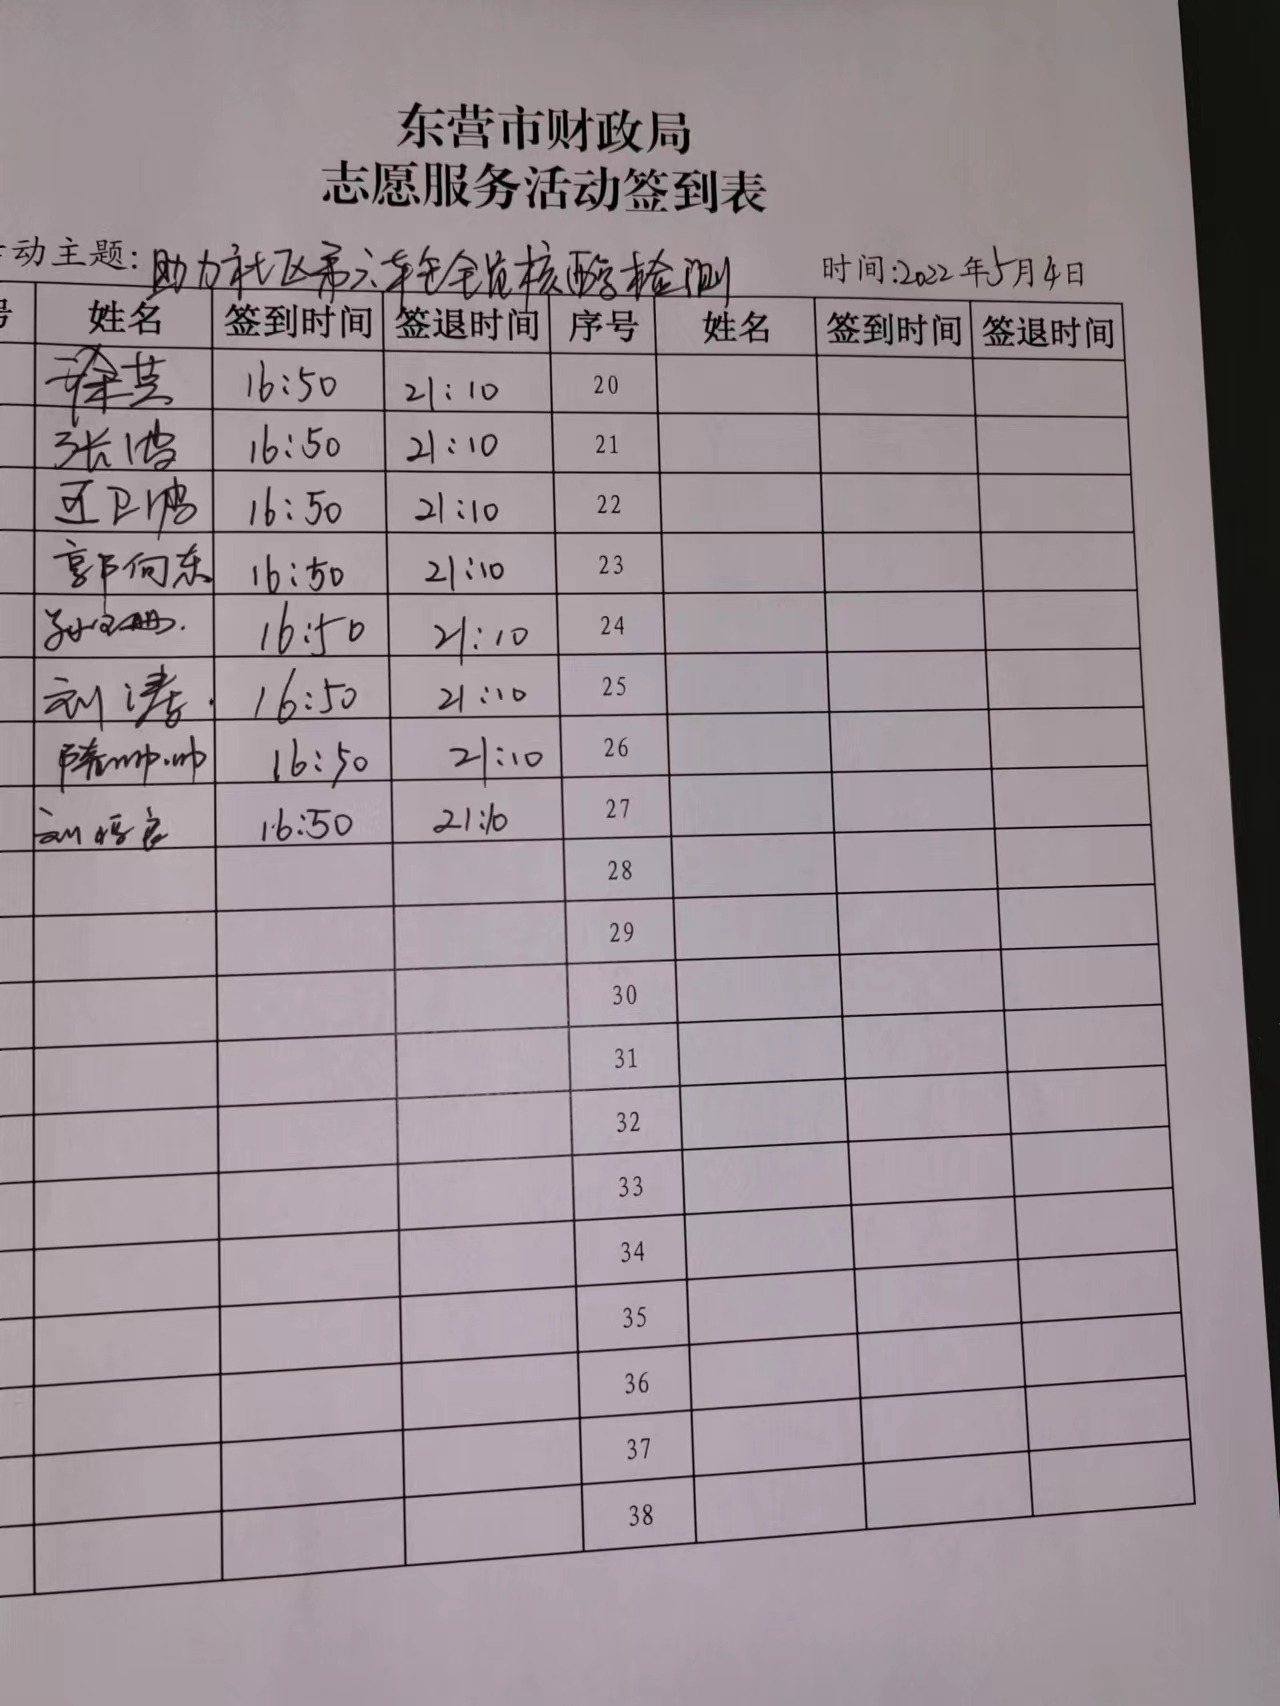 东营市财政局
志愿服务活动签到表
动主题：助力社区第六轮全员核酸检测 时间：2022年5月4日
号 姓名 签到时间 签退时间 序号 姓名 签到时间 签退时间
16:50 21:10 20
张鸿 16:50 21:10 21
16:50 21:10 22
郭向东 16:50 21:10 23
16:50 21:10 24
刘涛 16:50 21:10 25
隋帅帅 16:50 21:10 26
刘 16:50 21:10 27
28
29
30
31
32
33
34
35
36
37
38